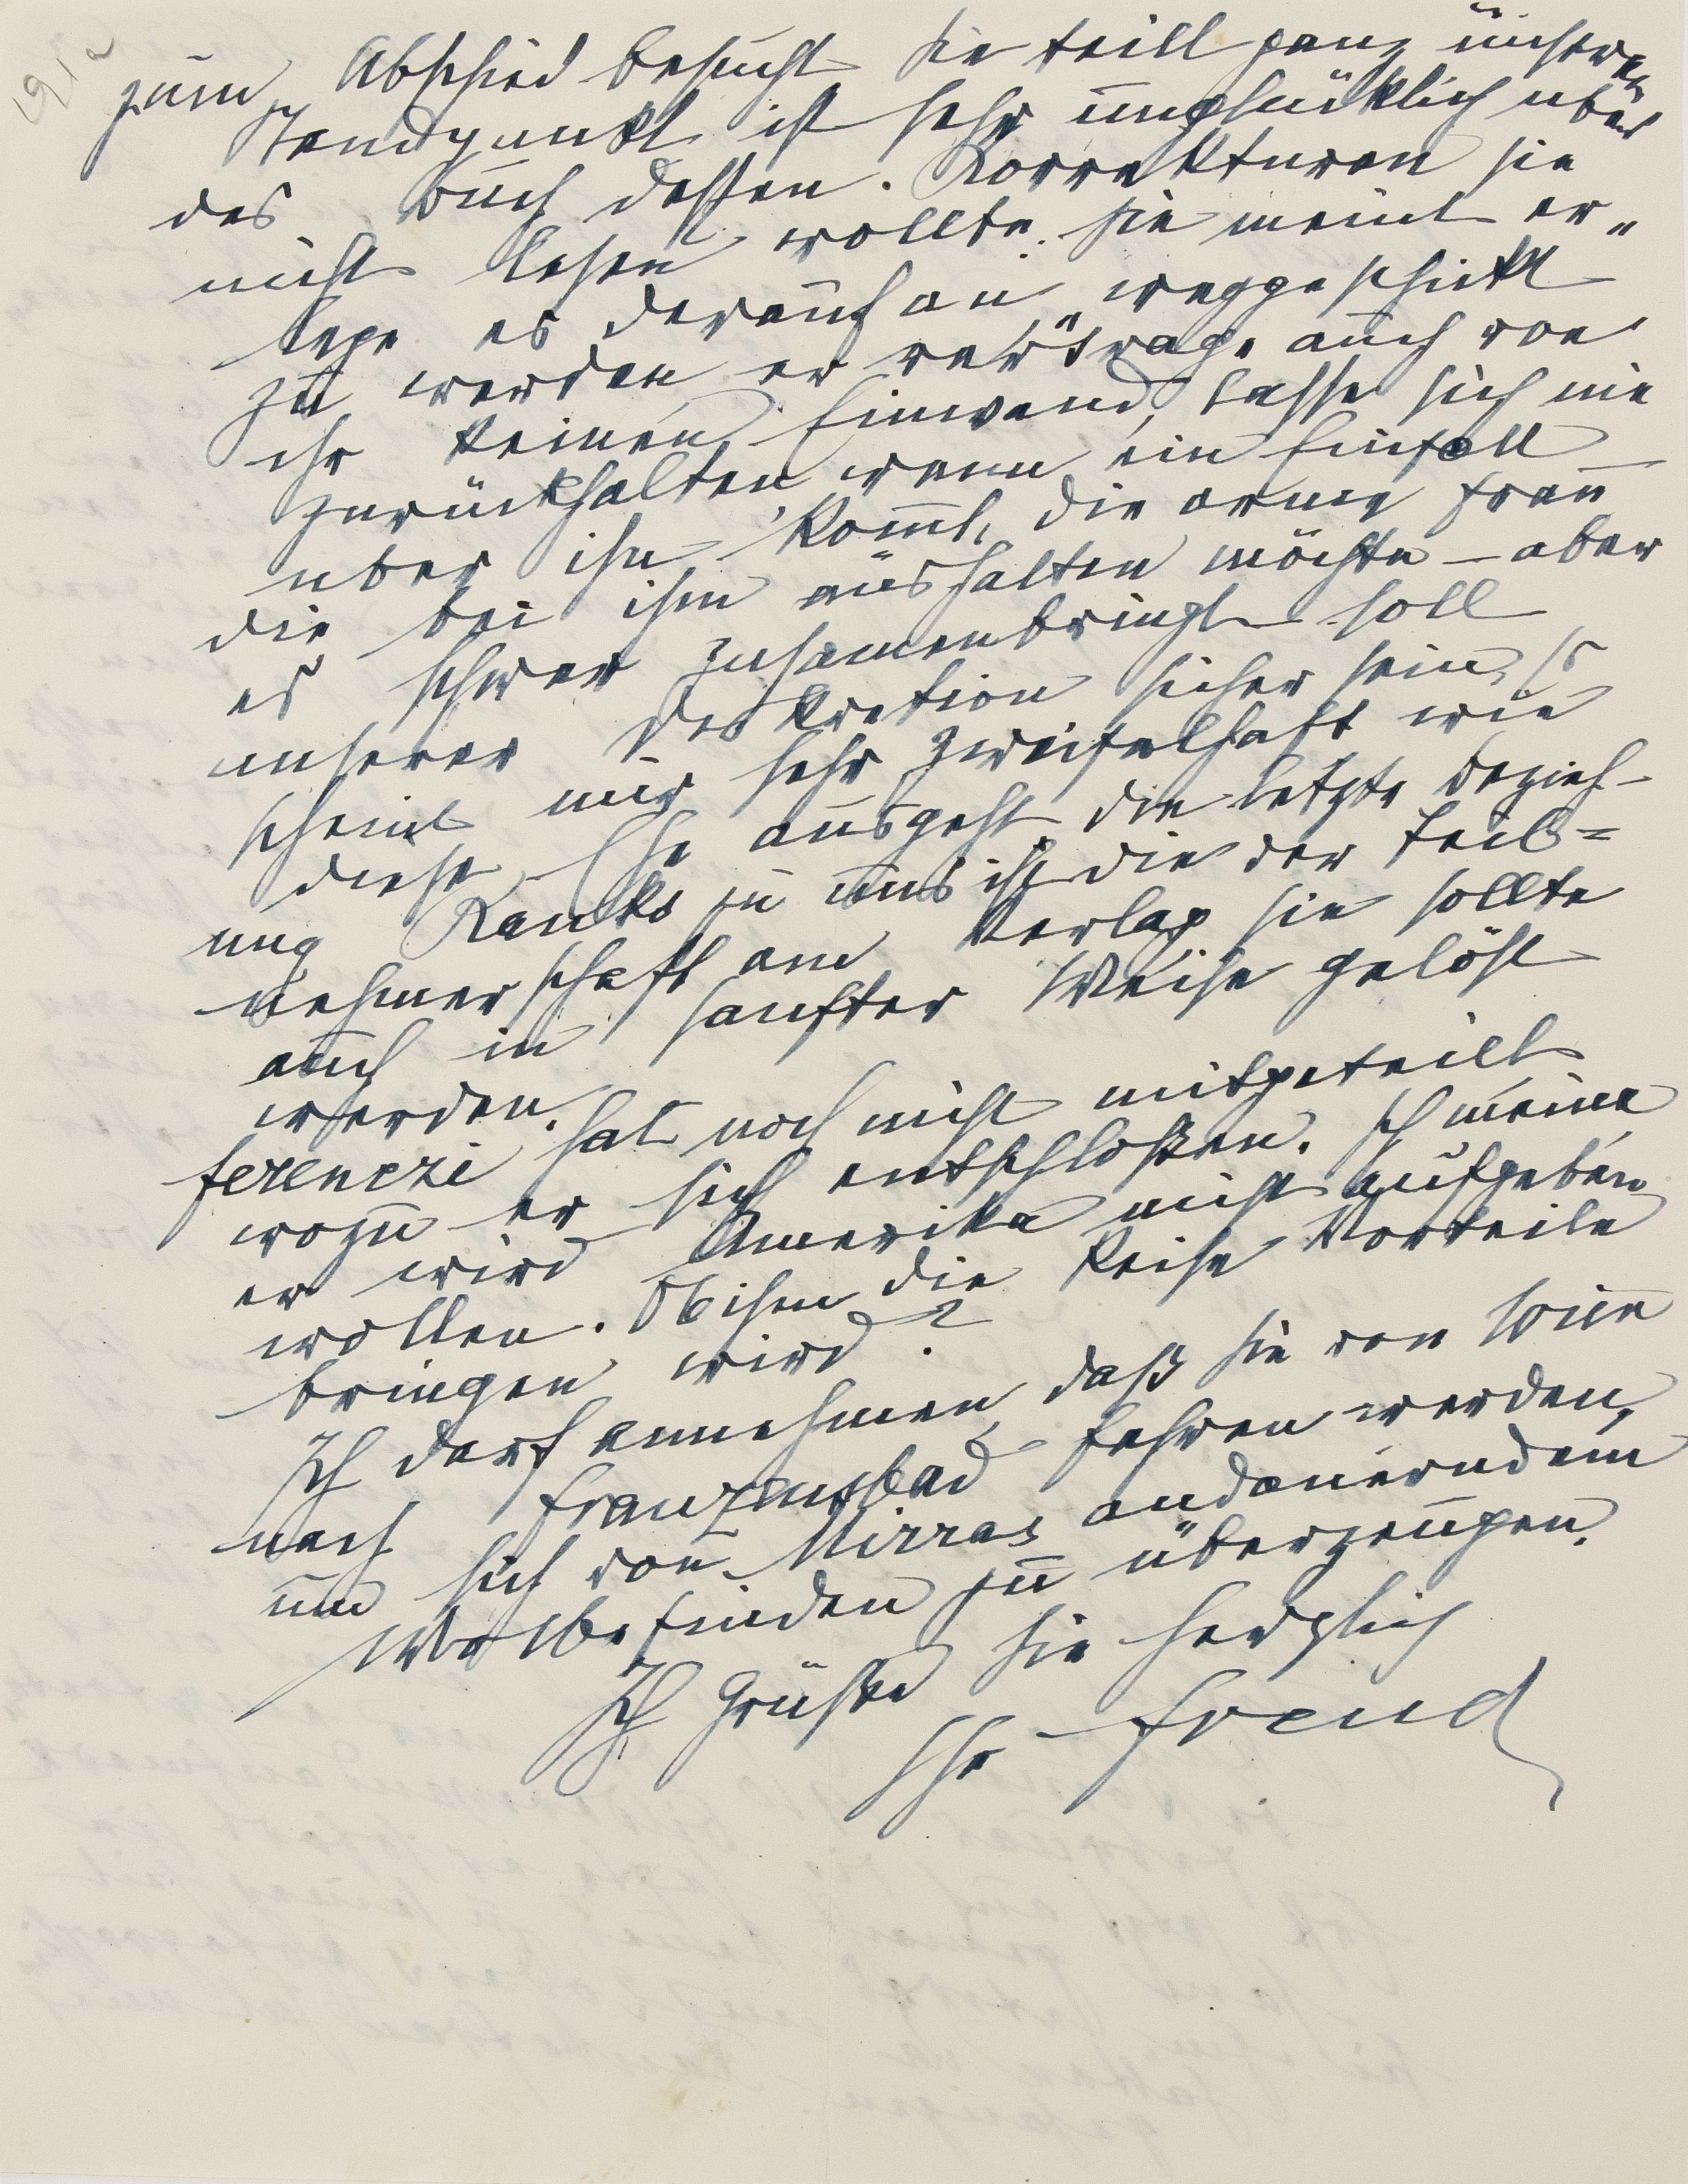 zum Abschied besucht. Sie teilt ganz unseren
Standpunkt ist sehr unglücklich über
das Buch dessen Korrekturen sie
nicht lesen wollte. Sie meint er
lege es darauf an „weggeschickt
zu werden" er vertrage auch von
ihr keinen Einwand, lasse sich nie
zurückhalten wenn ein Einfall
über ihn komt, die arme Frau
die bei ihm aushalten möchte – aber
es schwer zusamenbringt soll
unserer Diskretion sicher sein. Es
scheint mir sehr zweifelhaft wie
diese Ehe ausgeht. Die letzte Bezieh-
ung Ranks zu uns ist die der Teil=
nehmerschaft am Verlag sie sollte
auch in sanfter Weise gelöst
werden.
Ferenczi hat noch nicht mitgeteilt
wozu er sich entschloßen. Ich meine
er wird Amerika nicht aufgeben
wollen. Ob ihm die Reise Vorteile
bringen wird?
Ich darf annehmen daß Sie von Wien
nach Franzensbad fahren werden,
um sich von Mirras andauerndem
Wolbefinden zu überzeugen.
Ich grüße Sie herzlich
Ihr Freud